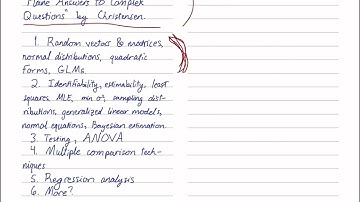 "Plane Answers to Complex
Questions" by Christensen.
1. Random vectors & matrices,
normal distributions, quadratic
forms, GLMs.
2. Identifiability, estimability, least
squares, MLE, min σ², sampling dist-
ributions, generalized linear models,
normal equations, Bayesian estimation.
3. Testing, ANOVA
4. Multiple comparison tech-
niques
5. Regression analysis
6. More?